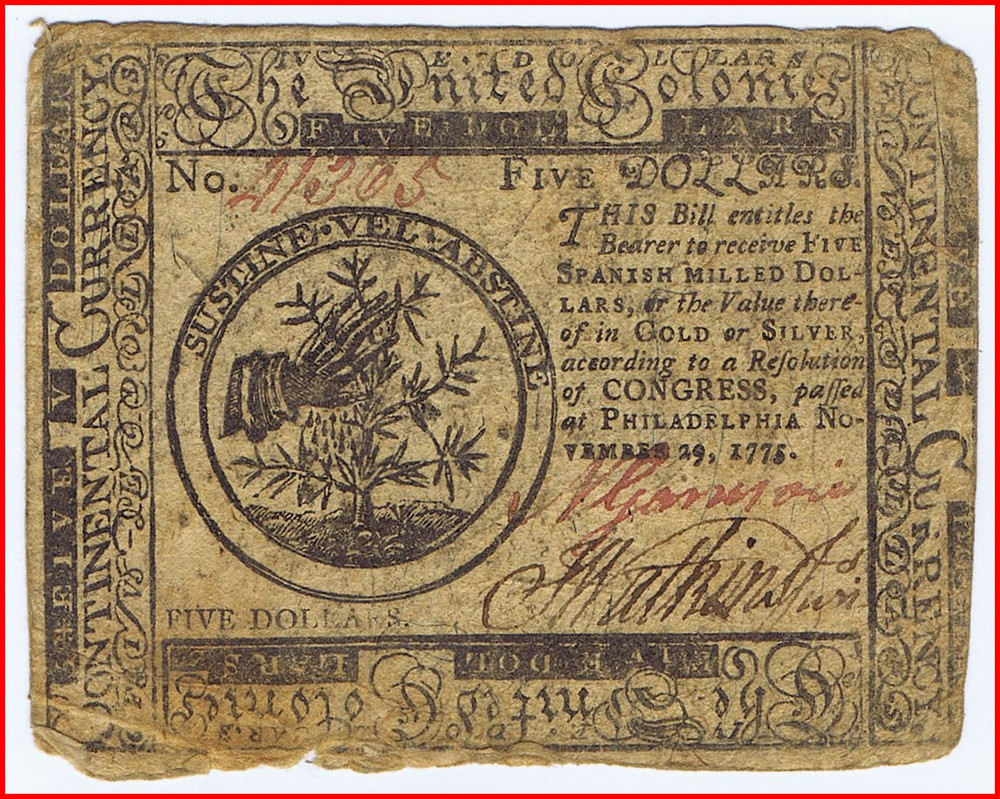 The United Colonies
FIVE DOLLARS
No. 21365
FIVE DOLLARS.
SUSTINE·VEL·ABSTINE
THIS Bill entitles the
Bearer to receive FIVE
SPANISH MILLED DOL-
LARS, or the Value there-
of in GOLD or SILVER,
according to a Reſolution
of CONGRESS, paſſed
at PHILADELPHIA NO-
VEMBER 29, 1775.
FIVE DOLLARS.
CONTINENTAL CURRENCY
CONTINENTAL CURRENCY
The United Colonies